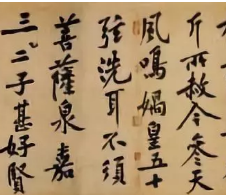 斤所赦今參天
風鳴媧皇五十
弦洗耳不須
菩薩泉嘉
三二子甚好賢